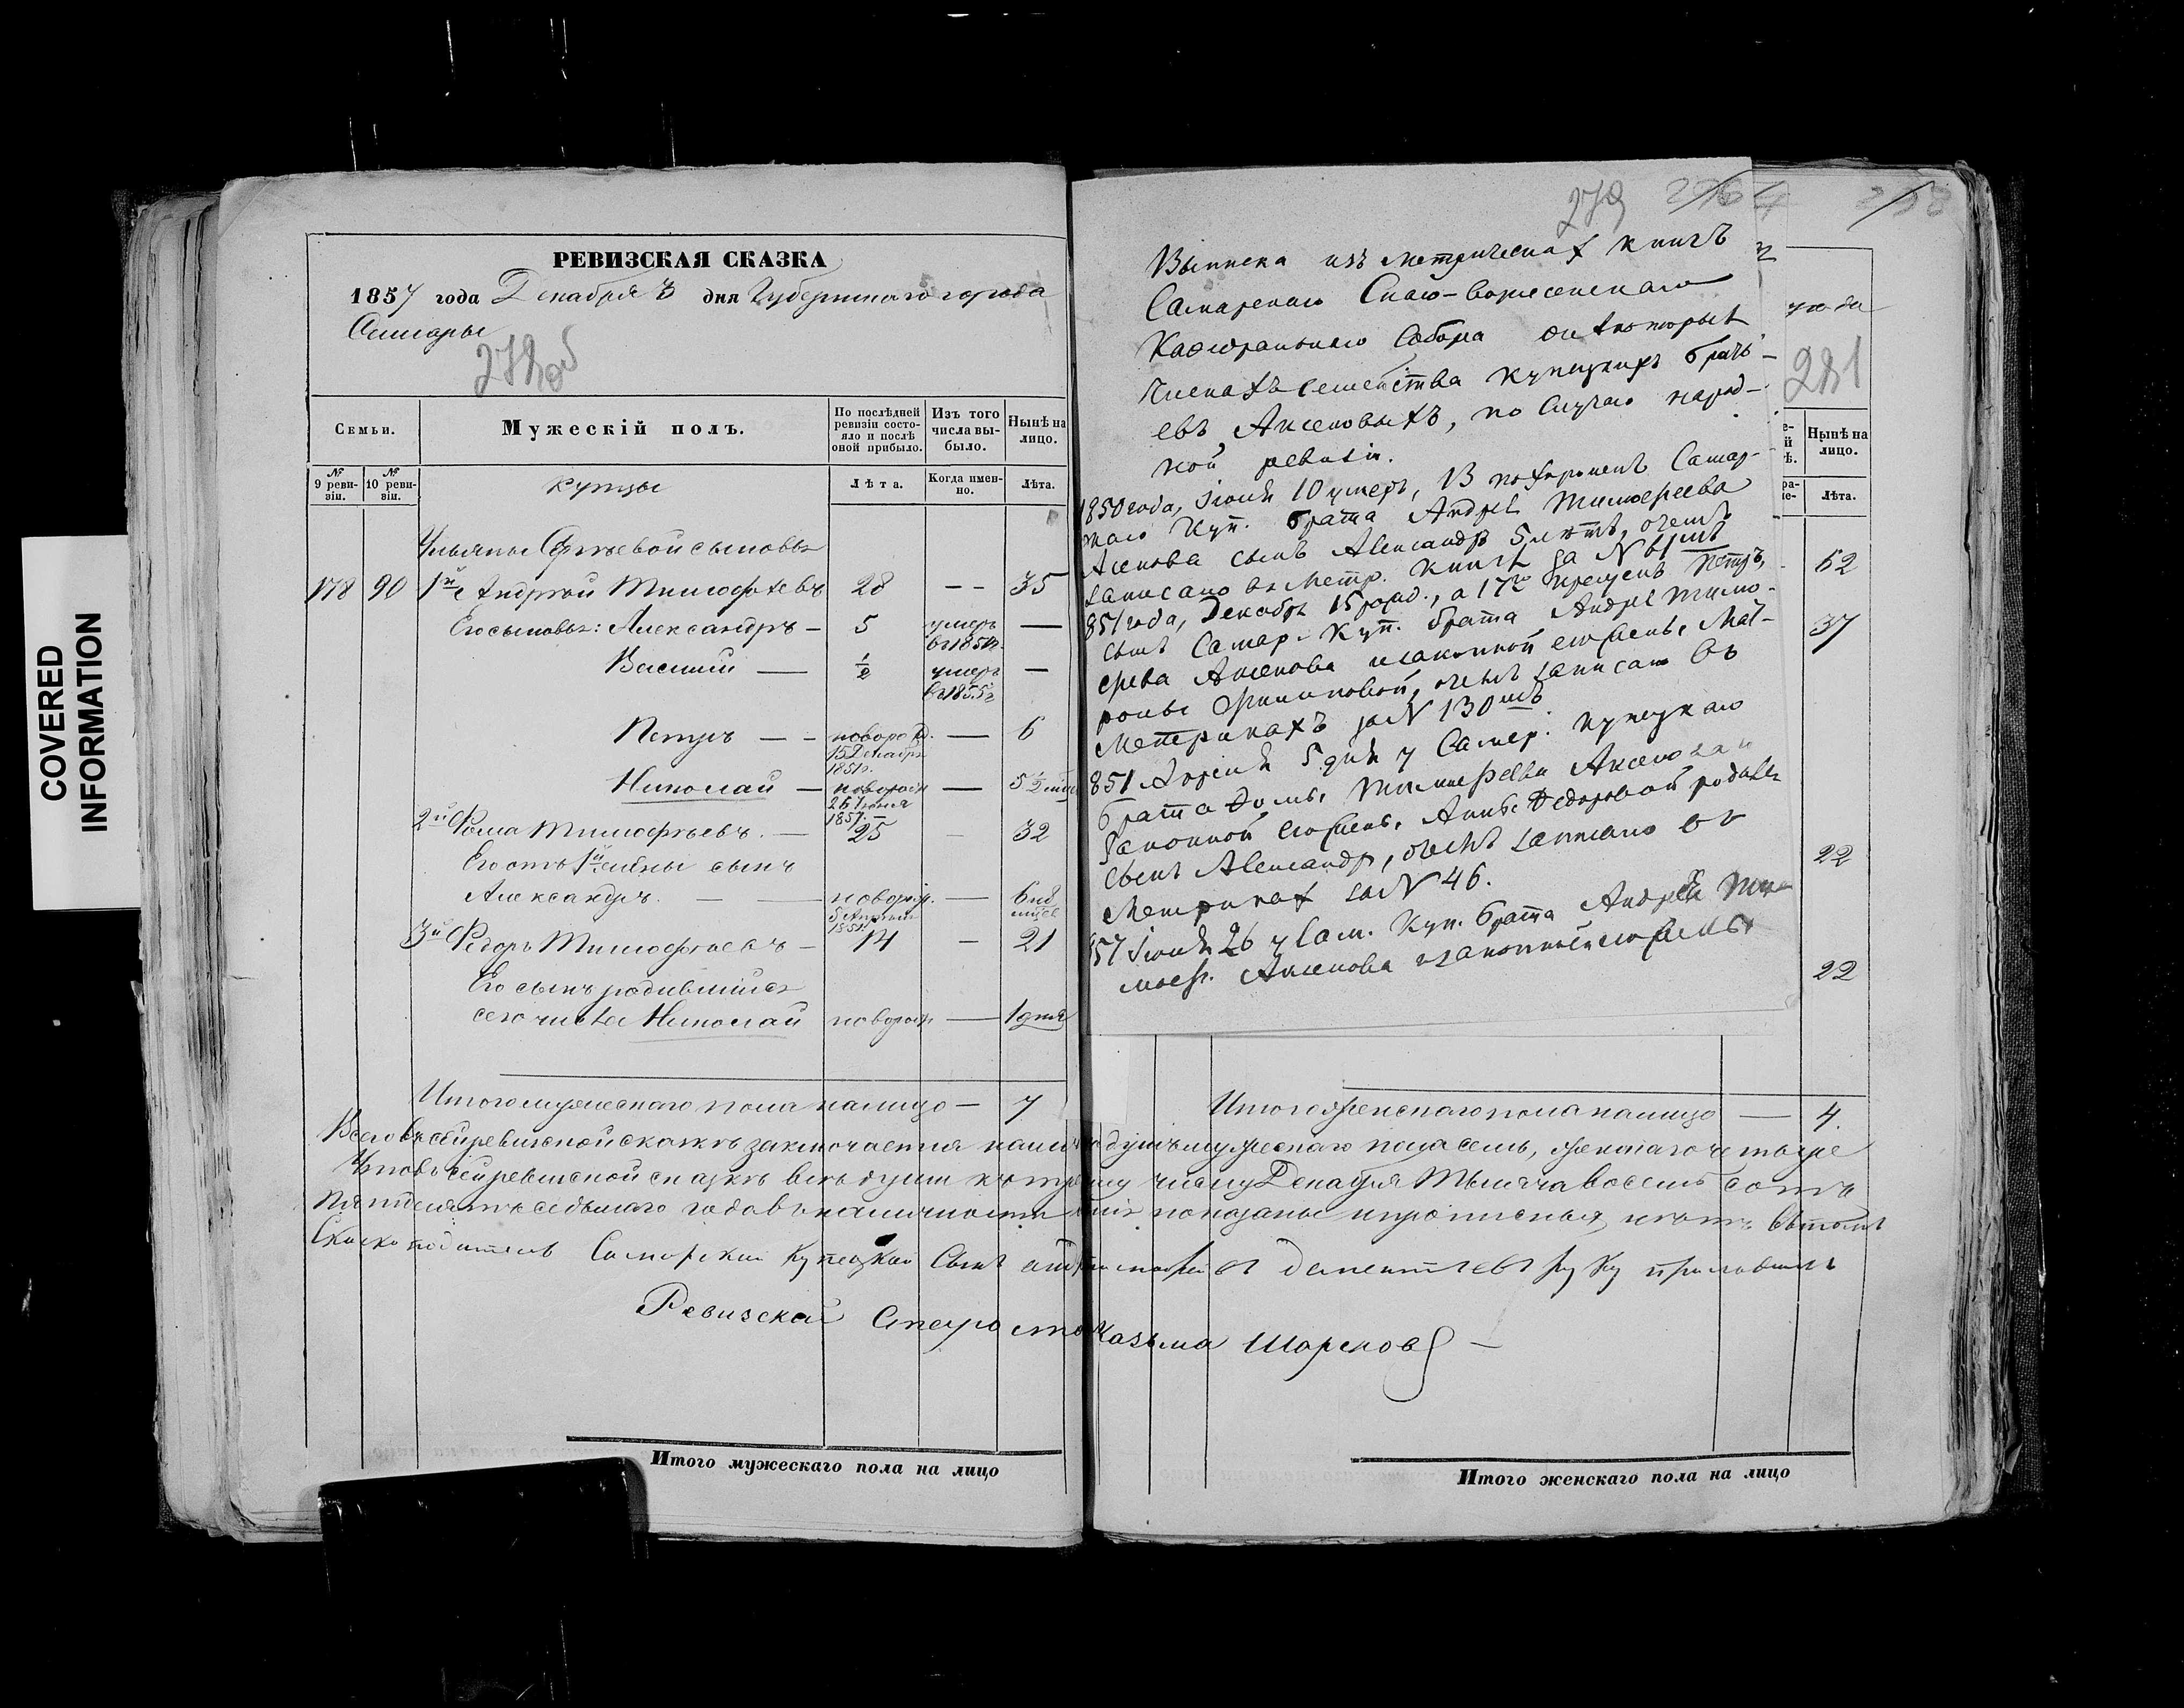 COVERED
INFORMATION
РЕВИЗСКАЯ СКАЗКА
1857 года Декабря 3 дня Губернскаго города
Самары
278об
Семьи.
Мужескій полъ.
По послѣдней ревизіи состояло и послѣ оной прибыло.
Изъ того числа выбыло.
Нынѣ на лицо.
№ 9 ревизіи.
№ 10 ревизіи.
купцы
Лѣта.
Когда именно.
Лѣта.
Ульяны Сергѣевой сыновья
178 90 1й Андрей Тимофѣевъ 28 - - 35
Его сыновья: Александръ — 5 умеръ —
Василій — ½ умеръ въ 1855г —
Петръ — - новорожд. 15 Декабря 1851г. — 6
Николай — новорожд 26 Іюня 1857. — 5½ мѣся
2й Фома Тимофѣевъ. — 25 — 32
Его отъ 1й жены сынъ
Александръ. — — новорож. 5 Апрѣля 1851г. — 6 мѣс
3й Федоръ Тимофѣевъ — 14 — 21
Его сынъ родившійся
сего числа Николай новорож — 1 дня
Итого мужескаго пола налицо — 7
279
258
Выписка изъ метрическихъ книгъ
Самарскаго Спасо-Вознесенскаго
Кафедральнаго Собора о нѣкоторыхъ
членахъ семейства купецкихъ брать-
евъ Аксеновыхъ, по случаю народ-
ной ревизіи.
1850 года, Іюня 10 умеръ, 13 похороненъ Самар-
скаго Куп. брата Андрея Тимофеева
Аксенова сынъ Александръ 5 лѣтъ, о чемъ
записано въ Метр. книгѣ за N 61мъ
851 года, Декабря 15 рожд., а 17го крещенъ Петръ,
сынъ Самар. Куп. брата Андрея Тимо-
феева Аксенова и законной его жены Мат-
роны Филиповой, о чемъ записано въ
Метрикахъ за N 130мъ
851 Апрѣля 5 дня у Самар. купецкаго
брата Фомы Тимофеева Аксенова и
законной его жены Анны Федоровой родился
сынъ Александръ, о чемъ записано въ
Метрикахъ за N 46.
857 Іюня 26 у Сам. Куп. брата Андрея Ти-
моф. Аксенова и законной его жены
года
281
Нынѣ на лицо.
Лѣта.
52
37
22
22
Итого женскаго пола налицо — 4.
Всего въ сей ревизской сказкѣ заключается налицо душъ мужескаго пола семь, женскаго четыре
Что въ сей ревизской сказкѣ всѣ души къ третьему числу Декабря Тысяча восемь сотъ
пятьдесятъ седьмаго года въ наличности показаны и прописныхъ нѣтъ въ томъ
Сказкоподатель Самарской Купецкой Сынъ руку приложилъ
Ревизской Староста Казьма Шареновъ —
Итого мужескаго пола на лицо
Итого женскаго пола на лицо